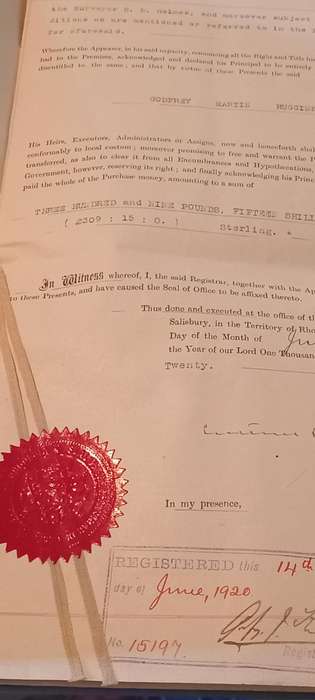 the Surveyor H. B. Holmes; and moreover subject
ditions as are mentioned or referred to in the
for aforesaid.
Wherefore the Appearer, in his said capacity, renouncing all the Right and Title his
had to the Premises, acknowledged and declared his Principal to be entirely
dis-entitled to the same; and that by virtue of these Presents the said
GODFREY MARTIN HUGGINS
His Heirs, Executors, Administrators or Assigns, now and henceforth shall
conformably to local custom; moreover promising to free and warrant the P
transferred, as also to clear it from all Encumbrances and Hypothecations,
Government, however, reserving its right; and finally acknowledging his Princ
paid the whole of the Purchase money, amounting to a sum of
THREE HUNDRED and NINE POUNDS, FIFTEEN SHILLI
( £309 : 15 : 0. ) Sterling.
In Witness whereof, I, the said Registrar, together with the Ap
to these Presents, and have caused the Seal of Office to be affixed thereto.
Thus done and executed at the office of th
Salisbury, in the Territory of Rho
Day of the Month of Ju
the Year of our Lord One Thousan
Twenty.
In my presence,
REGISTERED this 14th
day of June, 1920
No. 15197
Regist